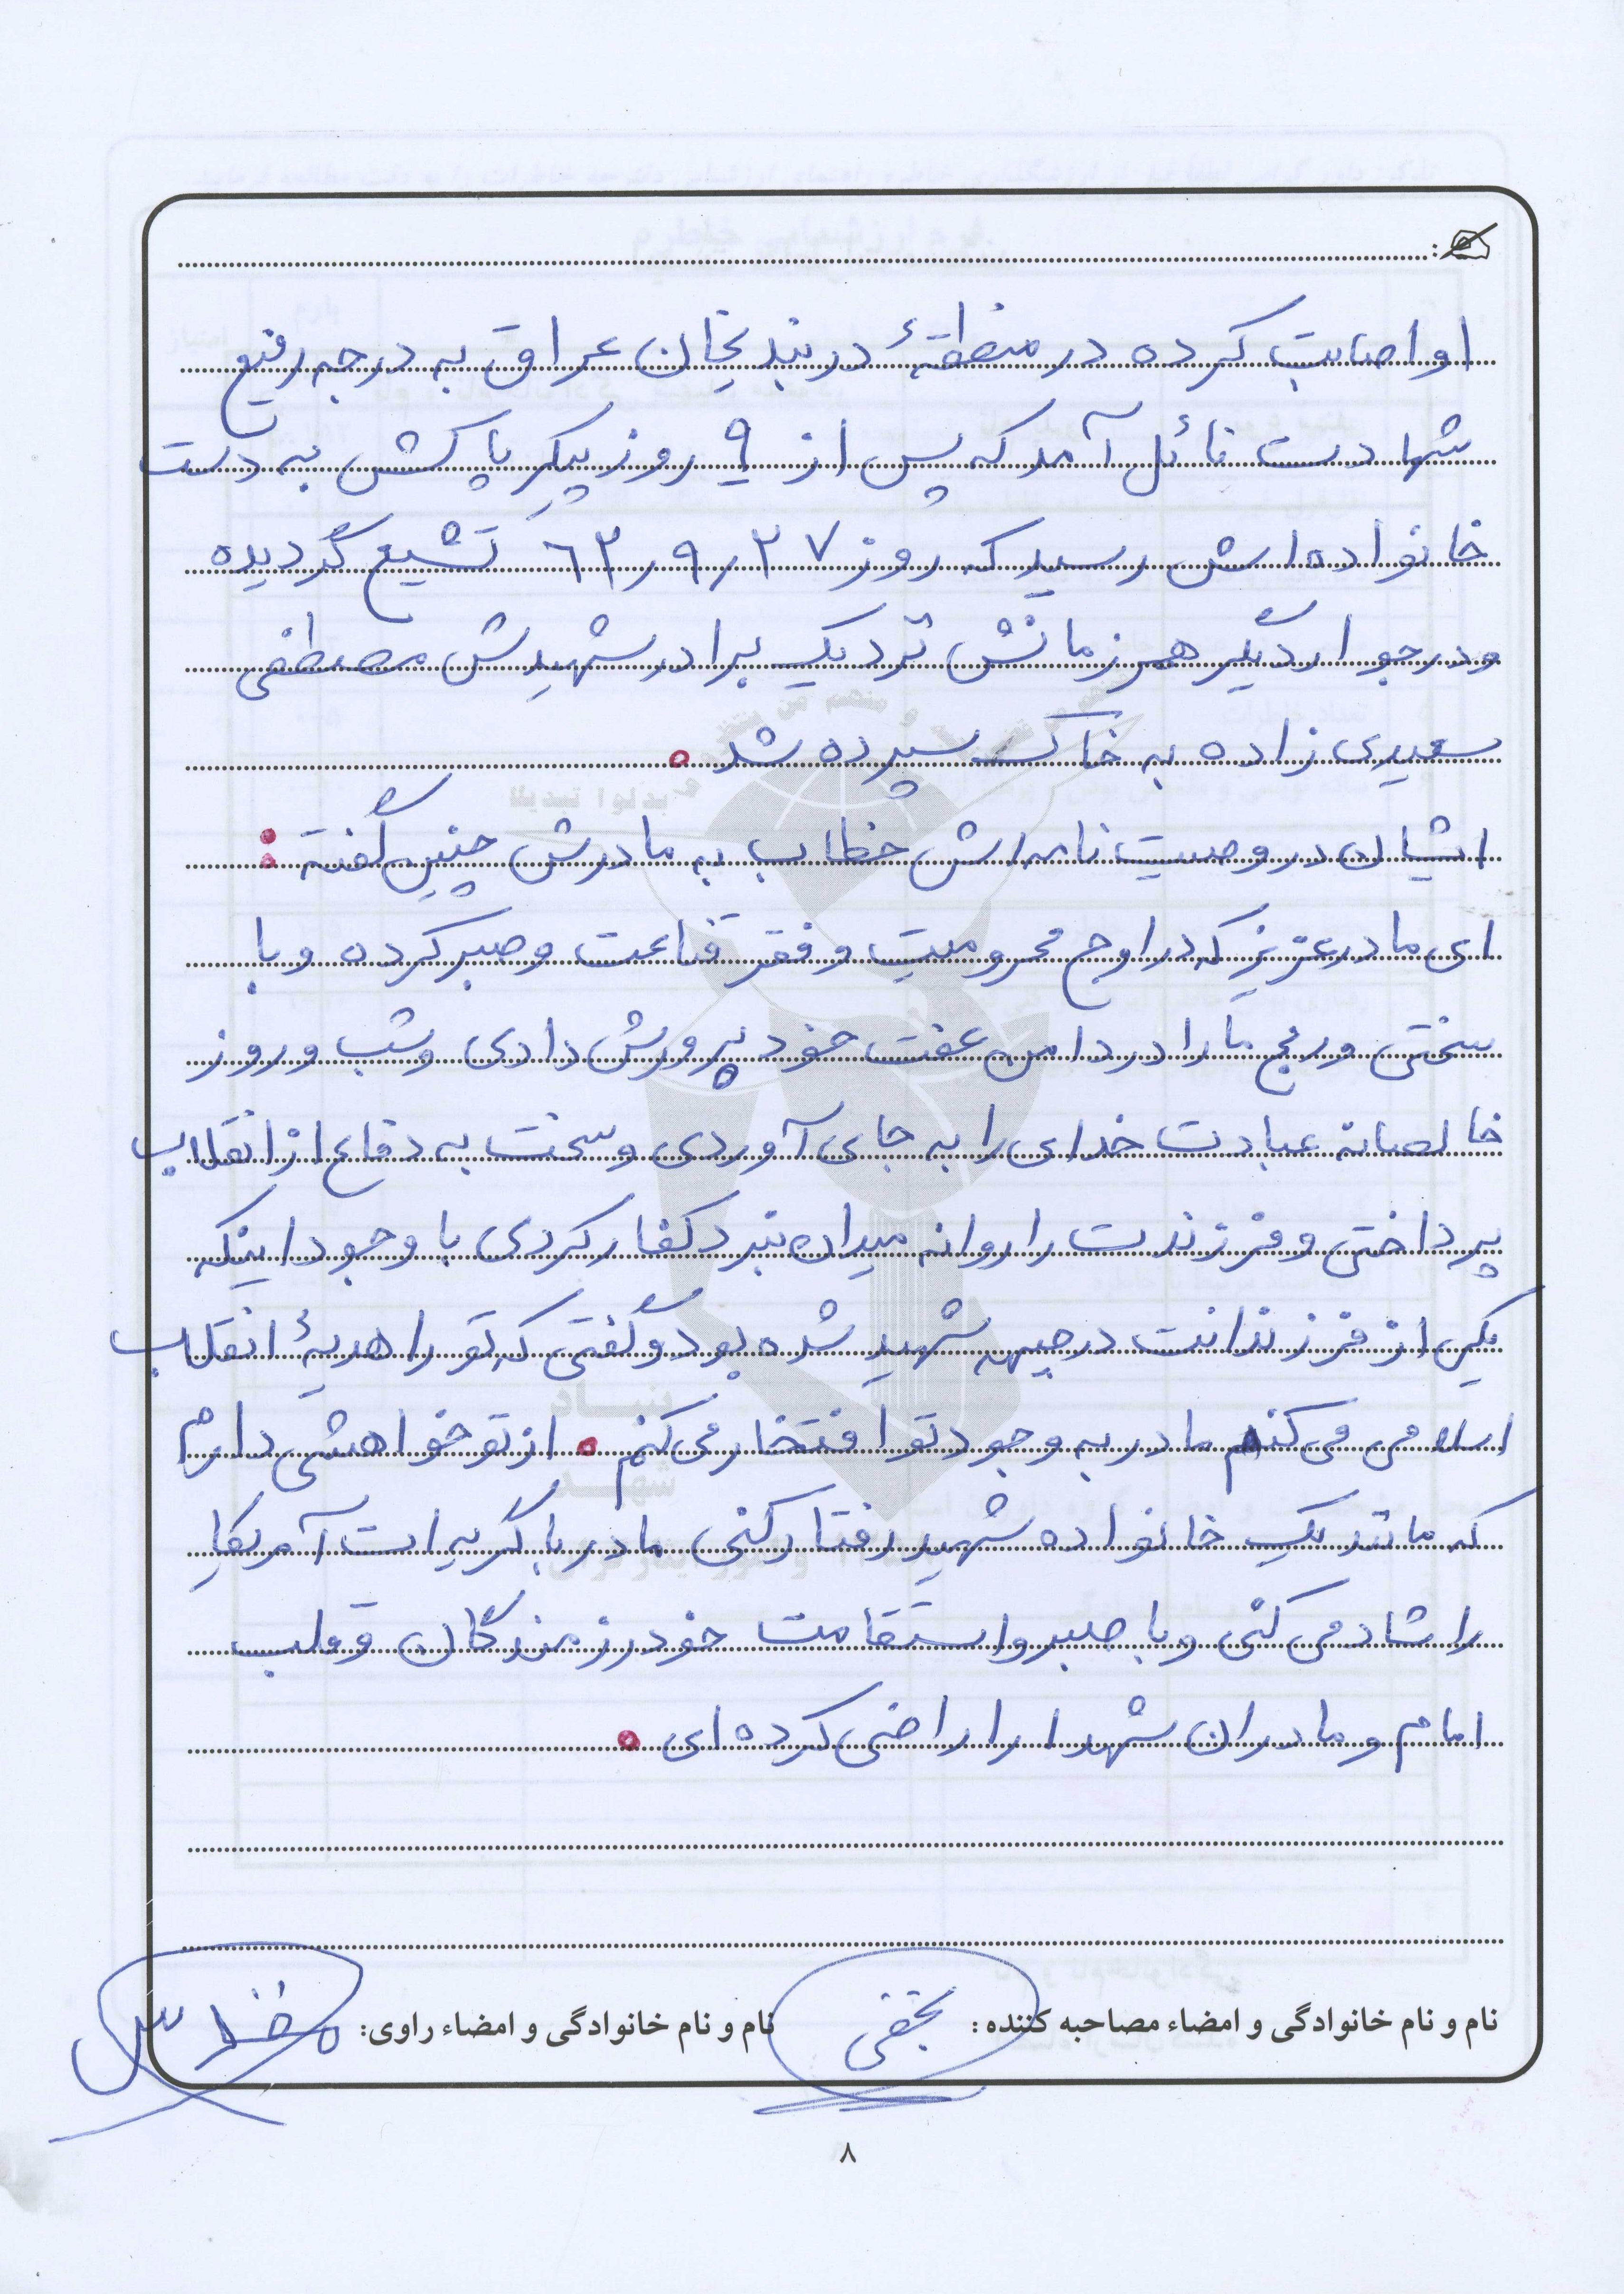 او اصابت کرده در منطقهٔ دربندیخان عراق به درجه رفیع
شهادت نائل آمد که پس از ۹ روز پیکر پاکش به دست
خانواده‌اش رسید که روز ۶۳٫۹٫۲۷ تشیع گردیده
و در جوار دیگر همرزمانش نزدیک برادر شهیدش مصطفی
سعیدی زاده به خاک سپرده شد.
ایشان در وصیت نامه‌اش خطاب به مادرش چنین گفته:
ای مادر عزیز که در اوج محرومیت و فقر قناعت و صبر کرده و با
سختی و رنج ما را در دامن عفت خود پرورش دادی و شب و روز
خالصانه عبادت خدای را به جای آوردی و سخت به دفاع از انقلاب
پرداختی و فرزندت را روانه میدان نبرد کفار کردی با وجود اینکه
یکی از فرزندانت در جبهه شهید شده بود و گفتی که تو را هدیهٔ انقلاب
اسلامی می کنم مادر به وجود تو افتخار می کنم. از تو خواهشی دارم
که مانند یک خانواده شهید رفتار کنی مادر با گریه ات آمریکا
را شاد می کنی و با صبر و استقامت خود رزمندگان و قلب
امام و مادران شهدا را راضی کرده ای.
نام و نام خانوادگی و امضاء مصاحبه کننده:
نام و نام خانوادگی و امضاء راوی:
۸